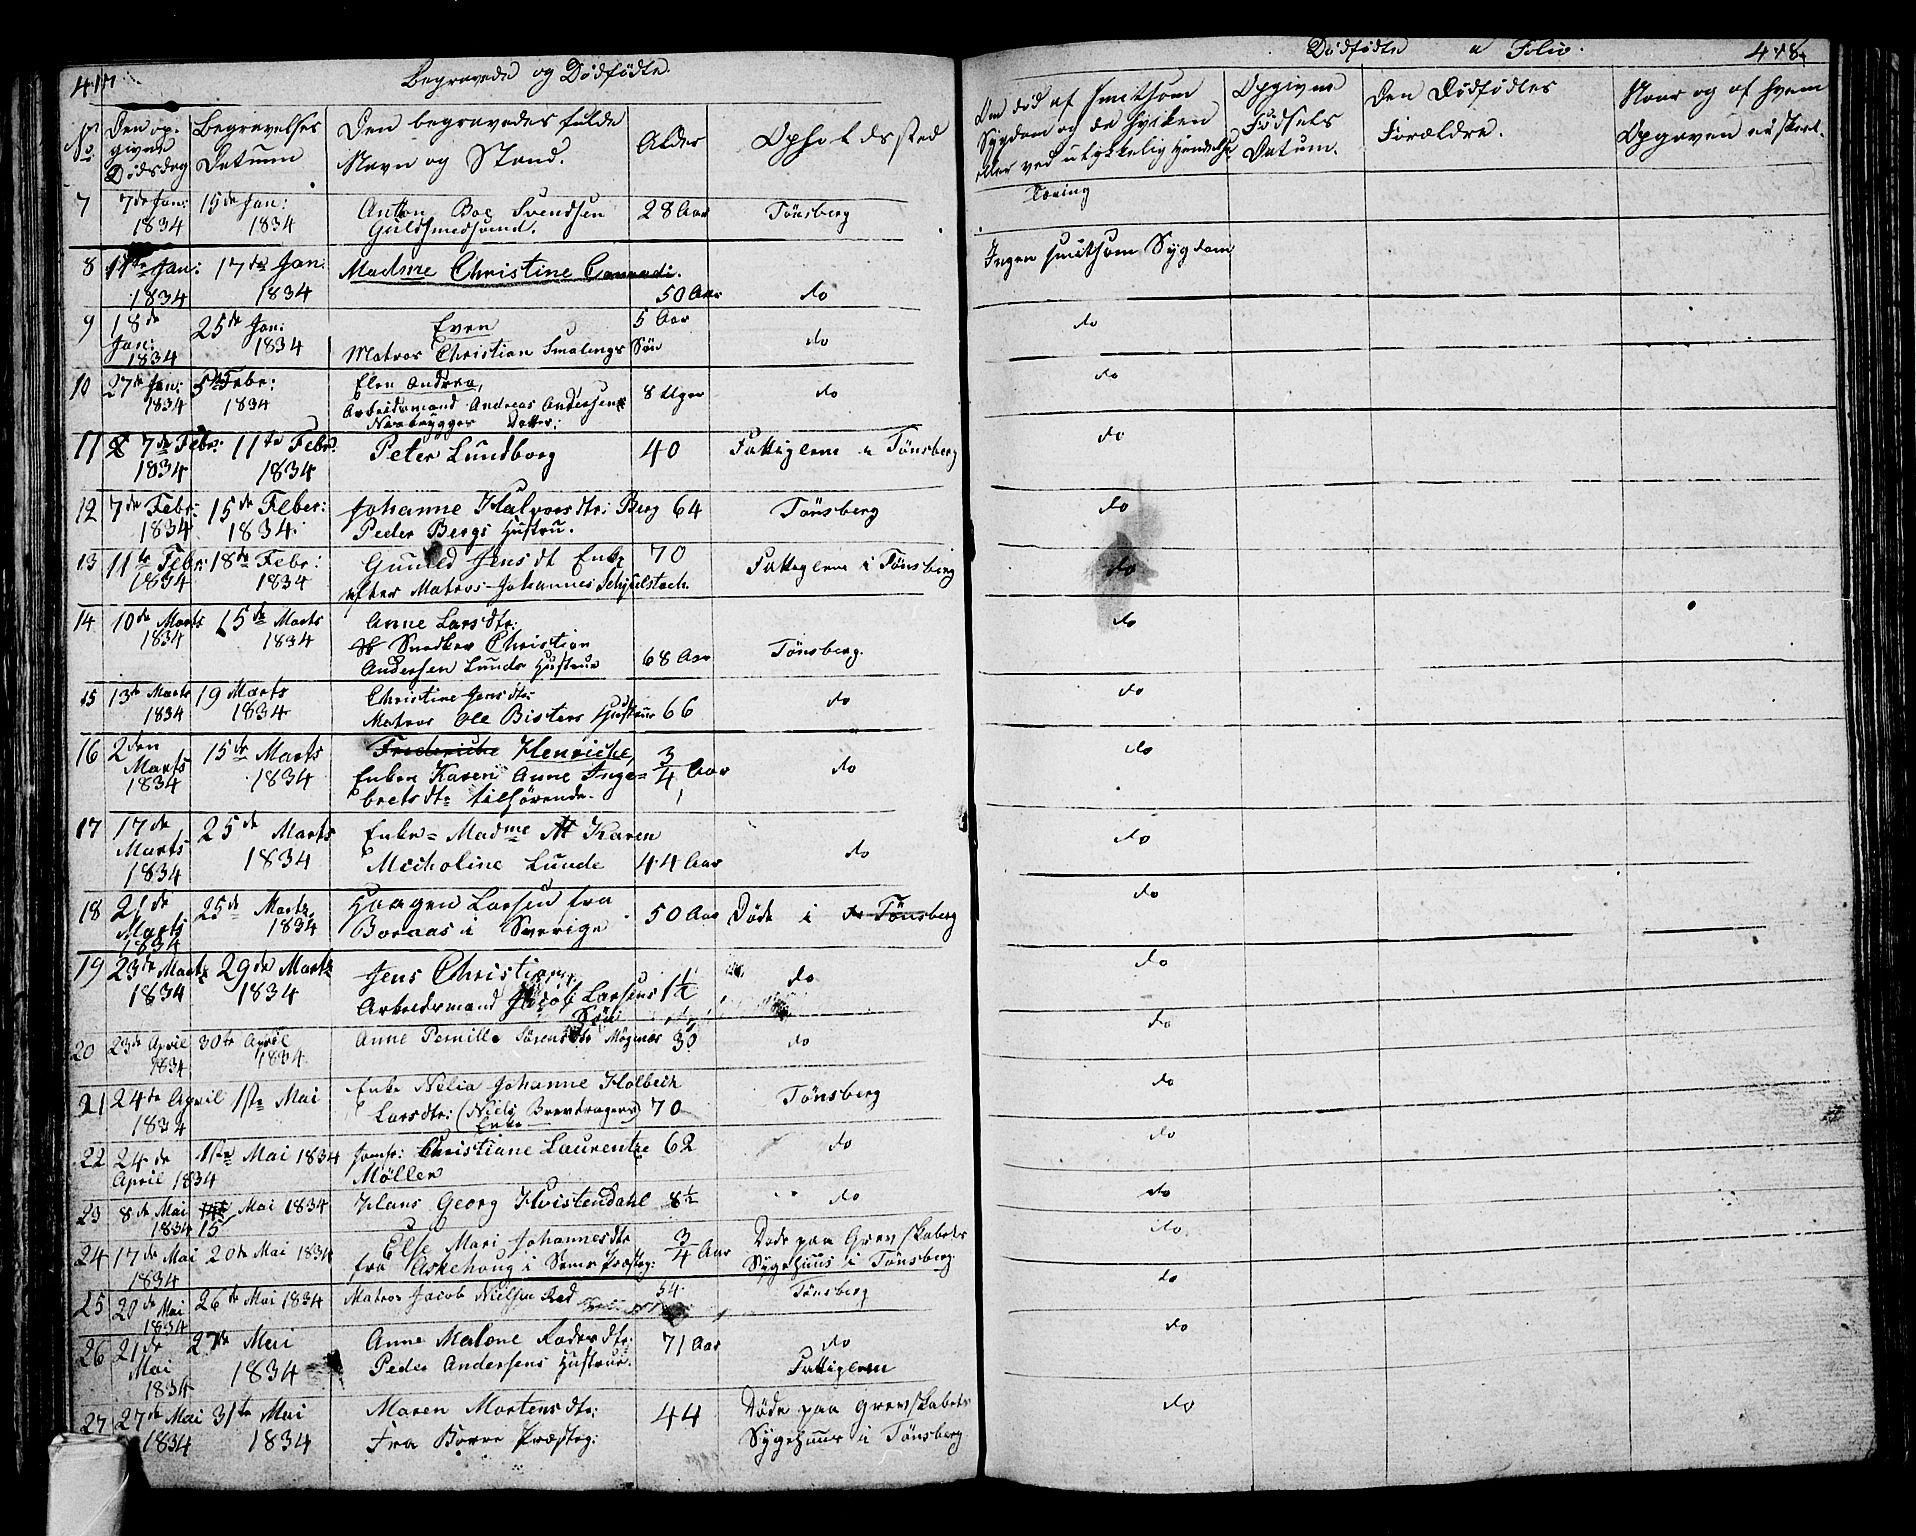 417. Begravede og Dødfødte.
No Den opgivne Dødsdag Begravelses Datum Den begravedes fulde Navn og Stand. Alder Opholdssted
7 7de Jan: 1834 15de Jan: 1834 Anton Boe Svendsen 28 Aar Tönsberg
Guldsmedsvend.
8 11te Jan: 1834 17de Jan. 1834 Madme Christine Conradi. 50 Aar do
9 18de Jan: 1834 25de Jan: 1834 Even 5 Aar do
Matros Christian Smalings Søn
10 27de Jan: 1834 5te Febr: 1834 Elen Andrea, 8 Uger do
Arbeidsmand Andreas Andersen
Datter:
11 7de Febr: 1834 11te Febr. 1834 Peter Lundborg 40 Fattiglem i Tönsberg
12 7de Febr: 1834 15de Feber: 1834. Johanne Halvorsdtr: Berg 64 Tönsberg
Peder Bergs Hustru.
13 11te Febr: 1834 18de Febr: 1834 Gunild Jensdt Enke 70 Fattiglem i Tönsberg
efter Matros Johannes
14 10de Marts 1834 15de Marts 1834 Anne Larsdtr:
Snedker Christian
Andersen Lunds Hustrue 68 Aar Tönsberg.
15 13de Marts 1834 19 Marts 1834 Christine Jensdtr: do
Matros Ole Bisters Hustrue 66
16 2den Marts 1834 15de Marts 1834 Frederiche Henriche, 3/4 Aar do
Enken Karen Anne Inge=
bretsdtr tilhørende.
17 17de Marts 1834 25de Marts 1834 Enke= Madme Karen
Micholine Lunde 44 Aar do
18 21de Marts 1834 25de Martz 1834 Haagen Larsen fra 50 Aar Døde i do Tönsberg
Boraas i Sverige
19 23de Martz 1834 29de Martz 1834 Jens Christian, do
Arbeidsmand Jacob Larsens 1 1/2
Søn
20 23de April 1834 30te April 1834 Anne Pernille Sörensdtr 30 do
21 24de April 1834 1ste Mai Enke Nelia Johanne Holbech Tönsberg
Larsdtr: (Niels Brevdragers) 70
Enke
22 24de April 1834 1ste Mai 1834 Jomfr: Christiane Laurentze 62 do
Möller
23 8de Mai 1834 15 Mai 1834 Hans Georg Hvistendahl 8 1/2 do
24 17de Mai 1834 20de Mai 1834 Else Mari Johannesdtr 3/4 Aar Døde paa Grevskabets
fra Askehoug i Sems Præsteg: Sygehuus i Tönsberg
25 20de Mai 1834 26de Mai 1834 Matros Jacob Nielsen Rød 54. Tönsberg
26 21de Mai 1834 27de Mai 1834 Anne Malene do
Peder Andersens Hustrue. 71 Aar Fattiglem
27 27de Mai 1834 31te Mai 1834 Maren Mortensdtr: 44 Døde paa Grevskabets
Fra Borre Præsteg: Sygehuus i Tönsberg
Dødfødte Folio. 418.
Om død af smitsom Sygdom og da hvilken eller ved ulykkelig Hændelse Opgivne Fødsels Datum. Den Dødfødtes Forældre. Naar og af hvem Opgaven
Tæring
Ingen smitsom Sygdom
do
do
do
do
do
do
do
do
do
do
do
do
do
do
do
do
do
do
do